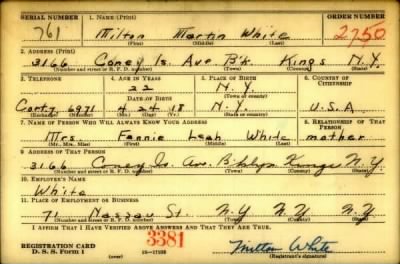 SERIAL NUMBER 1. NAME (Print) ORDER NUMBER
761 Milton Martin White 2750
(First) (Middle) (Last)
2. ADDRESS (Print)
3166 Coney Is. Ave B'k. Kings N.Y.
(Number and street or R. F. D. number) (Town) (County) (State)
3. TELEPHONE 4. AGE IN YEARS 5. PLACE OF BIRTH 6. COUNTRY OF CITIZENSHIP
22 N.Y.
DATE OF BIRTH (Town or county)
6971 4 24 18 N.Y. U.S.A
(Exchange) (Number) (Mo.) (Day) (Yr.) (State or country)
7. NAME OF PERSON WHO WILL ALWAYS KNOW YOUR ADDRESS 8. RELATIONSHIP OF THAT PERSON
Mrs. Fannie Leah White mother
(Mr., Mrs., Miss) (First) (Middle) (Last)
9. ADDRESS OF THAT PERSON
3166 Coney Is. Ave. B'klyn Kings N.Y.
(Number and street or R. F. D. number) (Town) (County) (State)
10. EMPLOYER'S NAME
White
11. PLACE OF EMPLOYMENT OR BUSINESS
71 Nassau St. N.Y. N.Y. N.Y.
(Number and street or R. F. D. number) (Town) (County) (State)
I AFFIRM THAT I HAVE VERIFIED ABOVE ANSWERS AND THAT THEY ARE TRUE.
REGISTRATION CARD 3381 Milton White
D. S. S. FORM 1 (Registrant's signature)